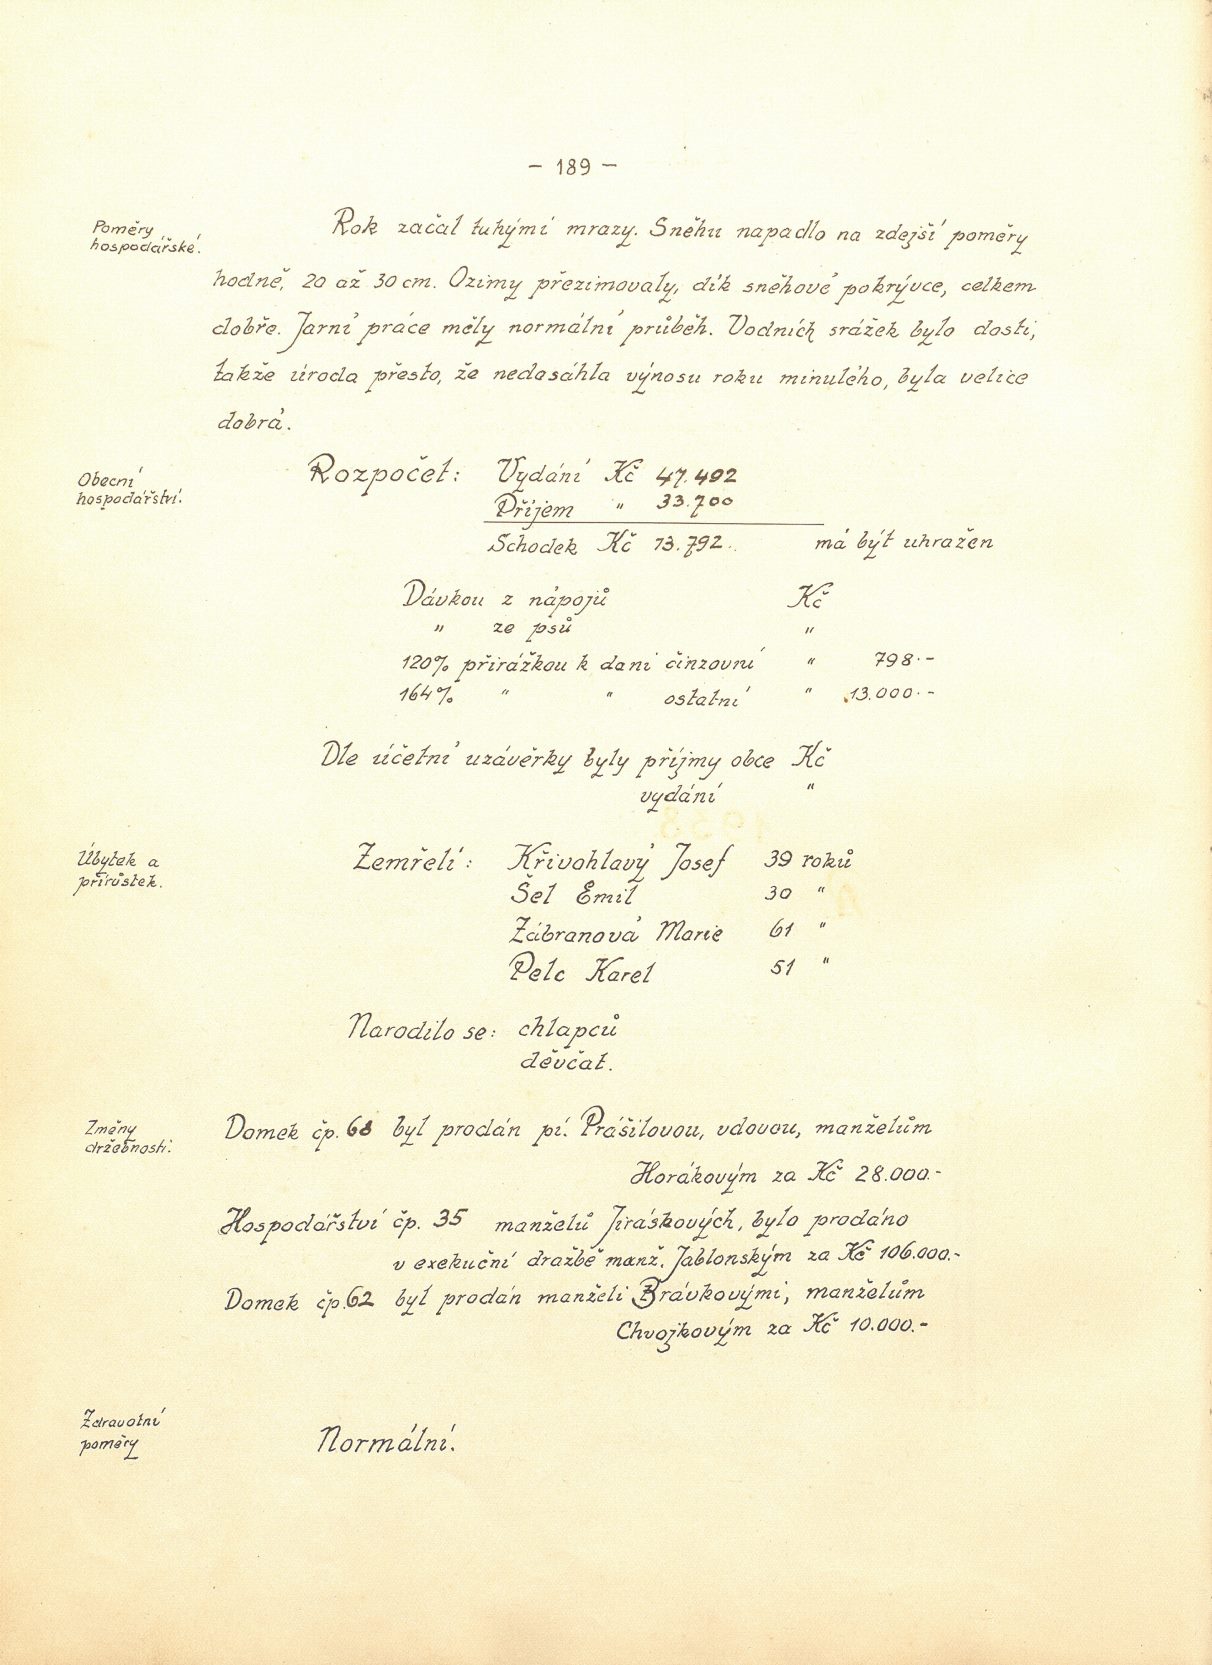 - 189 -
Poměry
hospodářské.
Rok začal tuhými mrazy. Sněhu napadlo na zdejší poměry
hodně, 20 až 30 cm. Ozimy přezimovaly, dík sněhové pokrývce, celkem
dobře. Jarní práce měly normální průběh. Vodních srážek bylo dosti,
takže úroda přesto, že nedosáhla výnosu roku minulého, byla velice
dobrá.
Obecní
hospodářství.
Rozpočet: Vydání Kč 47.492
Příjem " 33.700
Schodek Kč 13.792.. má být uhražen
Dávkou z nápojů Kč
" ze psů "
120% přirážkou k dani činzovní " 798.-
164% " " ostatní " 13.000.-
Dle účetní uzávěrky byly příjmy obce Kč
vydání "
Úbytek a
přírůstek.
Zemřelí: Křivohlavý Josef 39 roků
Šel Emil 30 "
Zábranová Marie 61 "
Pelc Karel 51 "
Narodilo se: chlapců
děvčat.
Změny
držebnosti.
Domek čp. 68 byl prodán pí. Prášilovou, vdovou, manželům
Horákovým za Kč 28.000.-
Hospodářství čp. 35 manželů Jiráskových, bylo prodáno
v exekuční dražbě manž. Jablonským za Kč 106.000.-
Domek čp. 62 byl prodán manželi Brávkovými, manželům
Chvojkovým za Kč 10.000.-
Zdravotní
poměry
Normální.